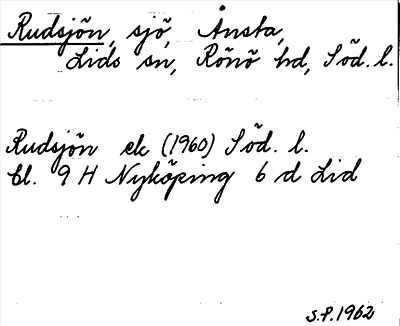 Rudsjön, sjö, Ånsta,
Lids sn, Rönö hd, Söd. l.
Rudsjön ek (1960) Söd. l.
bl. 9 H Nyköping 6 d Lid
S.P. 1962